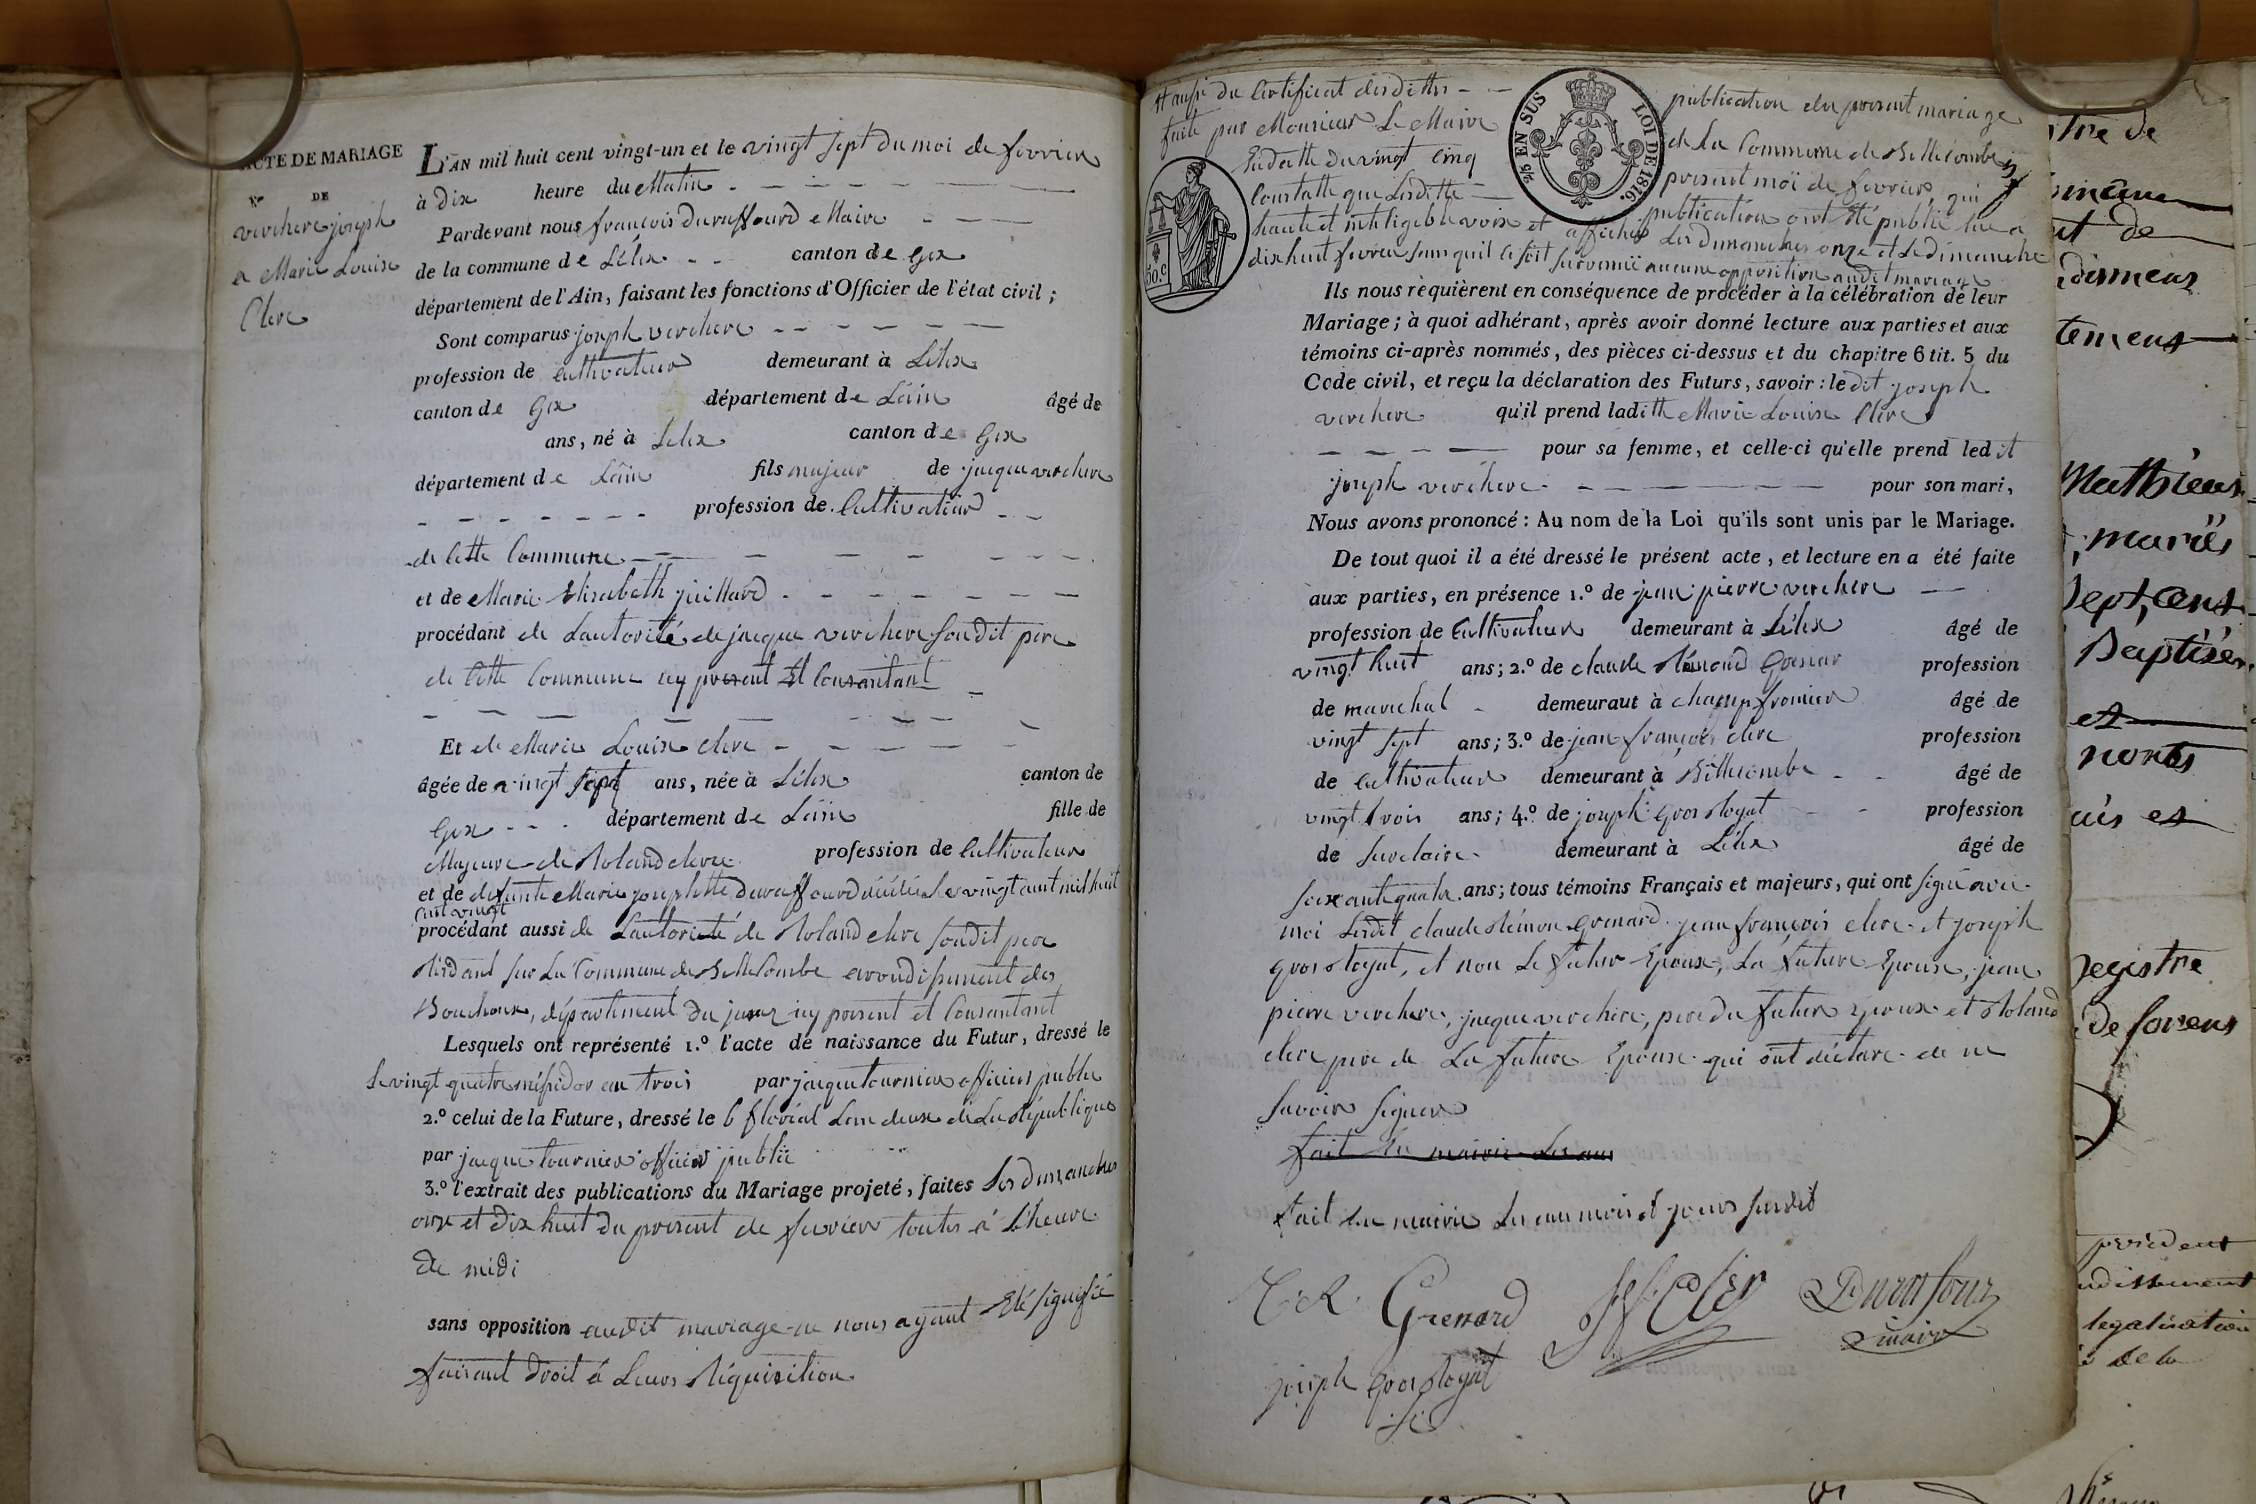 ACTE DE MARIAGE
N.o DE
verchere joseph
a Marie Louise
Clerc
L'AN mil huit cent vingt-un et le vingt sept du moi de fevrier
à dix heure du Matin
Pardevant nous françois duraffourd Maire
de la commune de Lélex canton de Gex
département de l'Ain, faisant les fonctions d'Officier de l'état civil ;
Sont comparus joseph verchere
profession de cultivateur demeurant à Lélex
canton de Gex département de Lain âgé de
ans, né à Lelex canton de Gex
département de Lain fils majeur de jacque verchere
profession de Cultivateur
de Cette Commune
et de Marie Elisabeth juillard
procédant de Lautorité de jacque verchere soudit pere
de Cette Commune icy present Et Consantant
Et de Marie Louise clerc
âgée de vingt sept ans, née à Lélex canton de
Gex département de Lain fille de
Majeure de Roland clerc profession de Cultivateur
et de defunte Marie josephette duraffourd décédée Le vingt aout mil huit
Cent vingt
procédant aussi de Lautorité de Roland clerc soudit pere
Résidant sur La Commune de BelleCombe arrondissement des
Bouchoux, département du jura icy present et Consantant
Lesquels ont représenté 1.o l'acte de naissance du Futur, dressé le
Le vingt quatre mésidor an trois par jacque tournier officier public
2.o celui de la Future, dressé le 6 floréal Lan deux de La République
par jacque tournier officier public
3.o l'extrait des publications du Mariage projeté, faites Les dimanches
onze et dix huit du present de fevrier toutes à Lheure
de midi
sans opposition audit mariage ne nous ayant Eté signifié
faisant droit à Leurs Réquisition
Et aussi du Certificat desdittes publication du present mariage
faite par Monsieur Le Maire de La Commune de Bellecombe
En datte du vingt cinq present moi de fevrier
Constatte que Lesditte publication ont Eté publié
haute et inteligeble voix et affiches Les dimanches onze et Le dimanche
dix huit fevrier sans quil se soit survenue aucune opposition audit mariage
25 EN SUS LOI DE 1816.
50.c
Ils nous requièrent en conséquence de procéder à la célébration de leur
Mariage ; à quoi adhérant, après avoir donné lecture aux parties et aux
témoins ci-après nommés, des pièces ci-dessus et du chapitre 6 tit. 5 du
Code civil, et reçu la déclaration des Futurs, savoir : le dit joseph
verchere qu'il prend laditte Marie Louise Clerc
pour sa femme, et celle-ci qu'elle prend ledit
joseph verchere pour son mari,
Nous avons prononcé : Au nom de la Loi qu'ils sont unis par le Mariage.
De tout quoi il a été dressé le présent acte, et lecture en a été faite
aux parties, en présence 1.o de jean pierre verchere
profession de Cultivateur demeurant à Lélex âgé de
vingt huit ans ; 2.o de claude Rémond Grenar profession
de marechal demeurant à champfromier âgé de
vingt sept ans ; 3.o de jean françois clerc profession
de Cultivateur demeurant à Bellecombe âgé de
vingt trois ans ; 4.o de joseph gros Royat profession
de demeurant à Lélex âgé de
soixante quatre ans ; tous témoins Français et majeurs, qui ont signé avec
moi Lesdit claude Rémon Grenard jean françois clerc et joseph
gros Royat, et non Le futur Epoux, La future Epouse, jean
pierre verchere, jacque verchere, pere du futur Epoux et Roland
clerc pere de La future Epouse qui ont déclaré de ne
savoir signer
fait En mairie Les an
fait En mairie Les an mois et jours susdit
C. R. Grenard J f Cler Duraffour
maire
joseph gros Royat
stre de
et de
Mathieux
mariés
sept, cent
Baptisés
et
noms
registre
de forens
president
legalisation
de la